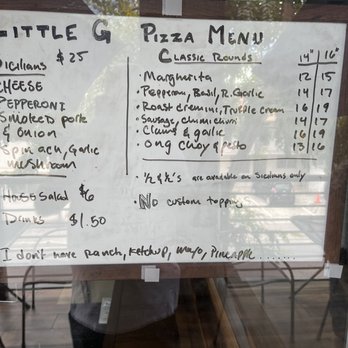 LITTLE G PIZZA MENU
Sicilians $25
CHEESE
PEPPERONI
SMOKED PORK
& ONION
SPINACH, GARLIC
MUSHROOM
HOUSE SALAD $6
DRINKS $1.50
CLASSIC ROUNDS 14" 16"
• Margherita 12 15
• Pepperoni, Basil, R. Garlic 14 17
• Roast cremini, Truffle cream 16 19
• Sausage, chimichurri 14 17
• Clams & garlic 16 19
• Ong Choy & pesto 13 16
• ½ & ½'s are available on Sicilians only
• No custom toppings
I don't have ranch, ketchup, mayo, Pineapple .......